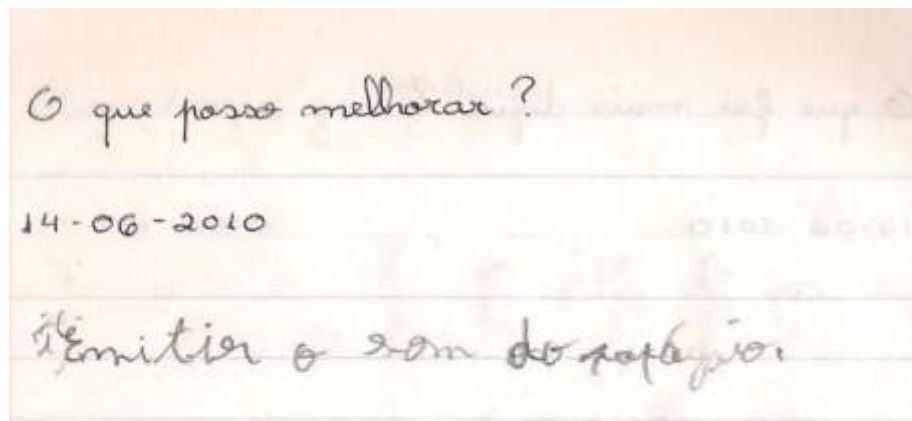 O que posso melhorar?
14-06-2010
Emitir o som do papagaio.